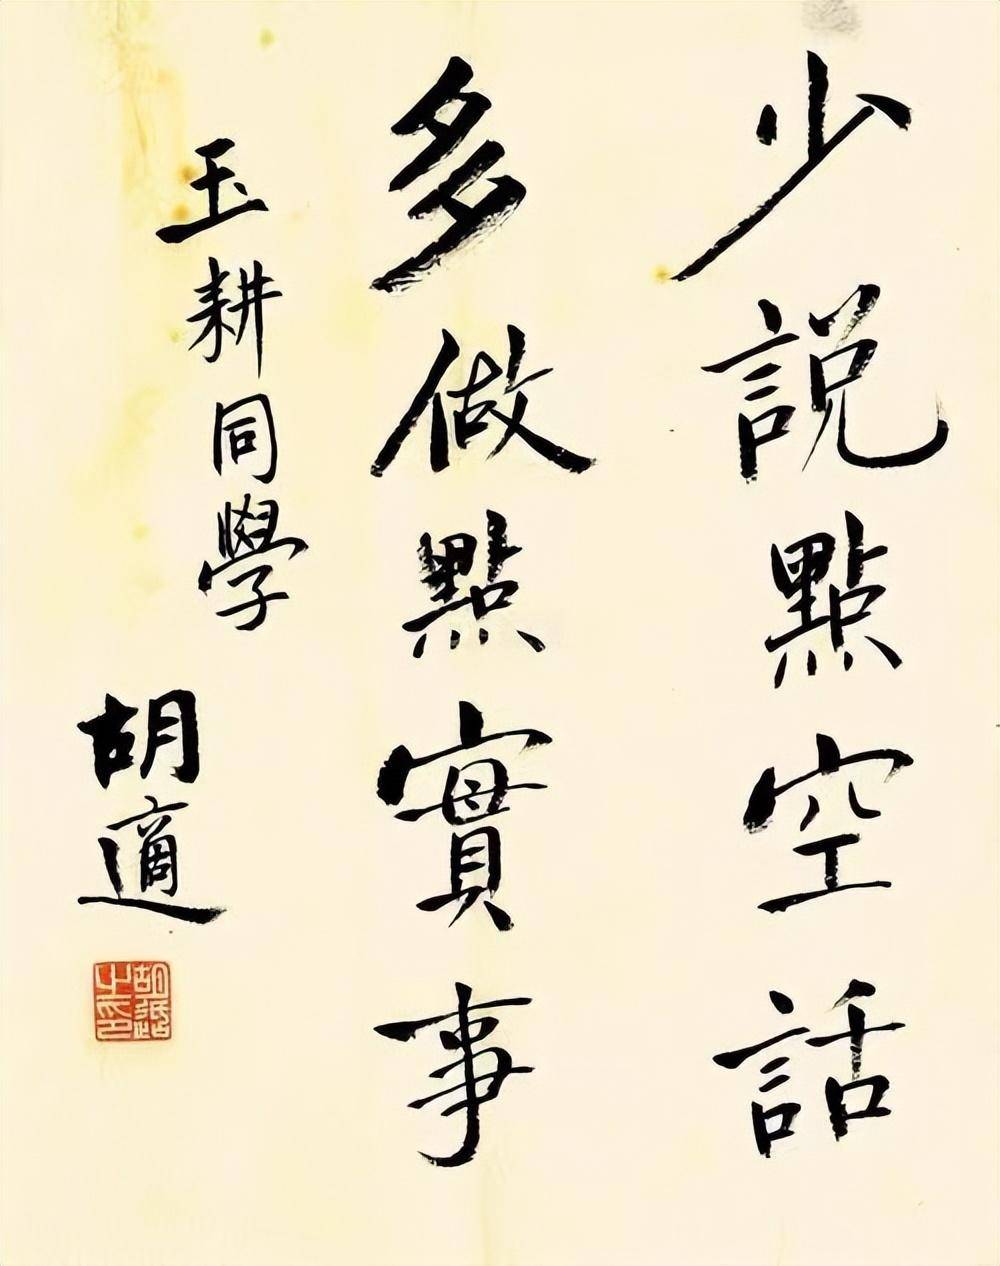 少說點空話
多做點實事
玉耕同學
胡適
胡適之印